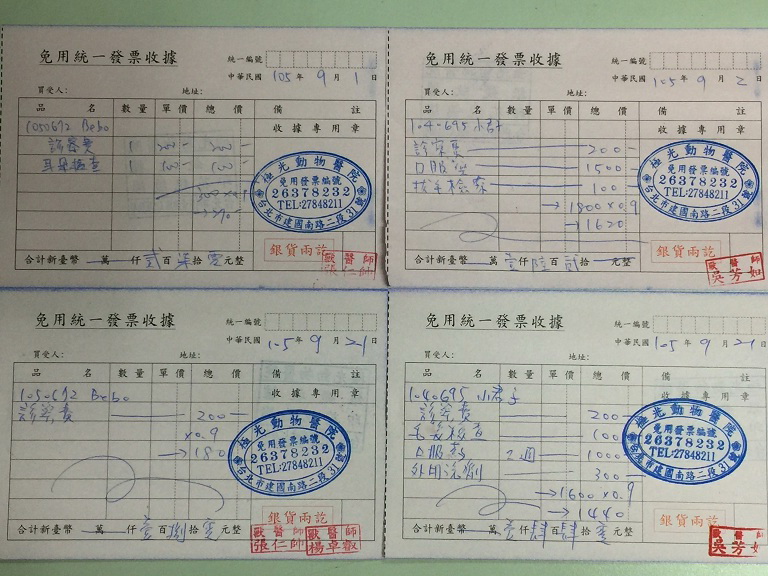 免用統一發票收據
統一編號
中華民國 105 年 9 月 1 日
買受人： 地址：
品名 數量 單價 總價 備註
收據專用章
1050672 Bebo
診察費 1 200- 200-
耳朵檢查 1 100- 100-
300×0.9
→270-
極光動物醫院
免用發票編號
26378232
TEL:27848211
台北市建國南路二段31號
銀貨兩訖
合計新臺幣 萬 仟 貳 百 柒 拾 零 元整
獸醫師
張仁帥
免用統一發票收據
統一編號
中華民國 105 年 9 月 2 日
買受人： 地址：
品名 數量 單價 總價 備註
收據專用章
1040695 小君子
診察費 200-
口服 1500-
拔毛檢察 100-
→1800×0.9
→1620
極光動物醫院
免用發票編號
26378232
TEL:27848211
台北市建國南路二段31號
銀貨兩訖
合計新臺幣 萬 壹 仟 陸 百 貳 拾 元整
獸醫師
吳芳如
免用統一發票收據
統一編號
中華民國 105 年 9 月 21 日
買受人： 地址：
品名 數量 單價 總價 備註
收據專用章
1050672 Bebo
診察費 200-
×0.9
→180
極光動物醫院
免用發票編號
26378232
TEL:27848211
台北市建國南路二段31號
銀貨兩訖
合計新臺幣 萬 仟 壹 百 捌 拾 零 元整
獸醫師 獸醫師
張仁帥 楊卓叡
免用統一發票收據
統一編號
中華民國 105 年 9 月 21 日
買受人： 地址：
品名 數量 單價 總價 備註
收據專用章
1040695 小君子
診察費 200-
毛髮檢查 100-
口服藥 2週 1000-
外用洗劑 300-
→1600×0.9
→1440
極光動物醫院
免用發票編號
26378232
TEL:27848211
台北市建國南路二段31號
銀貨兩訖
合計新臺幣 萬 壹 仟 肆 百 肆 拾 零 元整
獸醫師
吳芳如